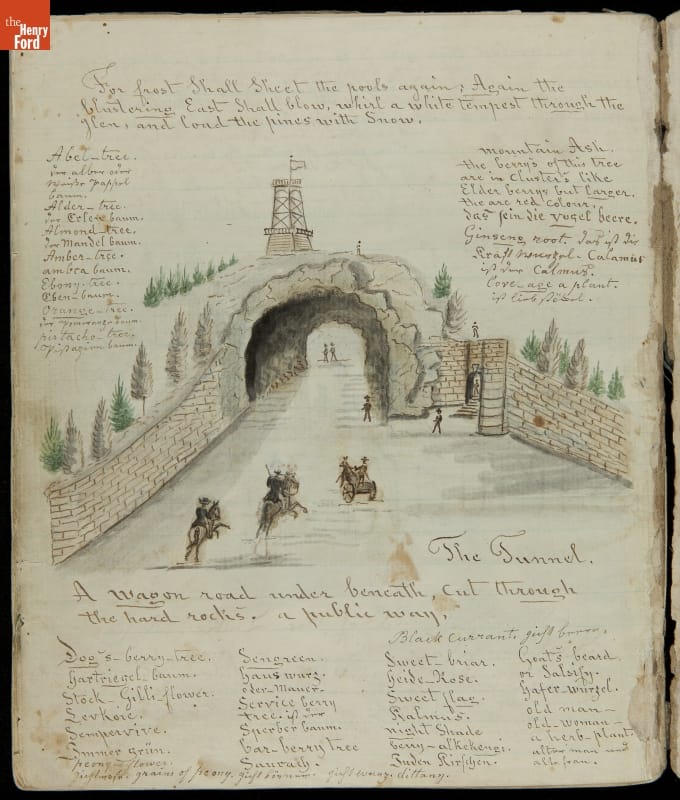 the
Henry
Ford
For frost Shall Sheet the pools again; Again the
blustering East Shall blow, whirl a white tempest through the
glen, and load the pines with Snow.
Abel-tree.
der alber oder
weisse pappel
baum.
Alder-tree.
der Erlen baum.
Almond-tree.
der Mandel baum.
Amber-tree.
ambra baum.
Ebony-tree.
Eben-baum.
Orange-tree.
der pomeranze baum.
pistacho-tree.
pistazien baum.
mountain Ash.
the berry's of this tree
are in Cluster's like
Elder berrys but Larger.
the are red Colour.
das sein die vogel beere.
Ginseng root. das ist die
Kraft wurzel-Calamus
ist der Calmus.
love age a plant.
ist liebstökel.
The Tunnel.
A wagon road under beneath, cut through
the hard rocks. a public way.
Black currant, gicht beeren,
Dog's-berry-tree.
Hartriegel-baum.
Stock Gilli-flower.
Levkoie.
Sempervive.
Immer grün.
peony-flower.
Sengreen.
Hauswurz
oder-Mauer-
Service berry
tree. ist der
Sperber baum.
bar-berry tree
Saurach.
Sweet-briar.
Heide-Rose.
Sweet flag.
Kalmus.
night Shade
berry-alkekengi.
Juden Kirschen.
Goat's beard
or Salsify.
Hafer-wurzel.
old man-
old-woman-
a herb-plant.
alter man und
alte frau.
gichtrose, grains of peony, gicht körner. gicht wurz, dittany.